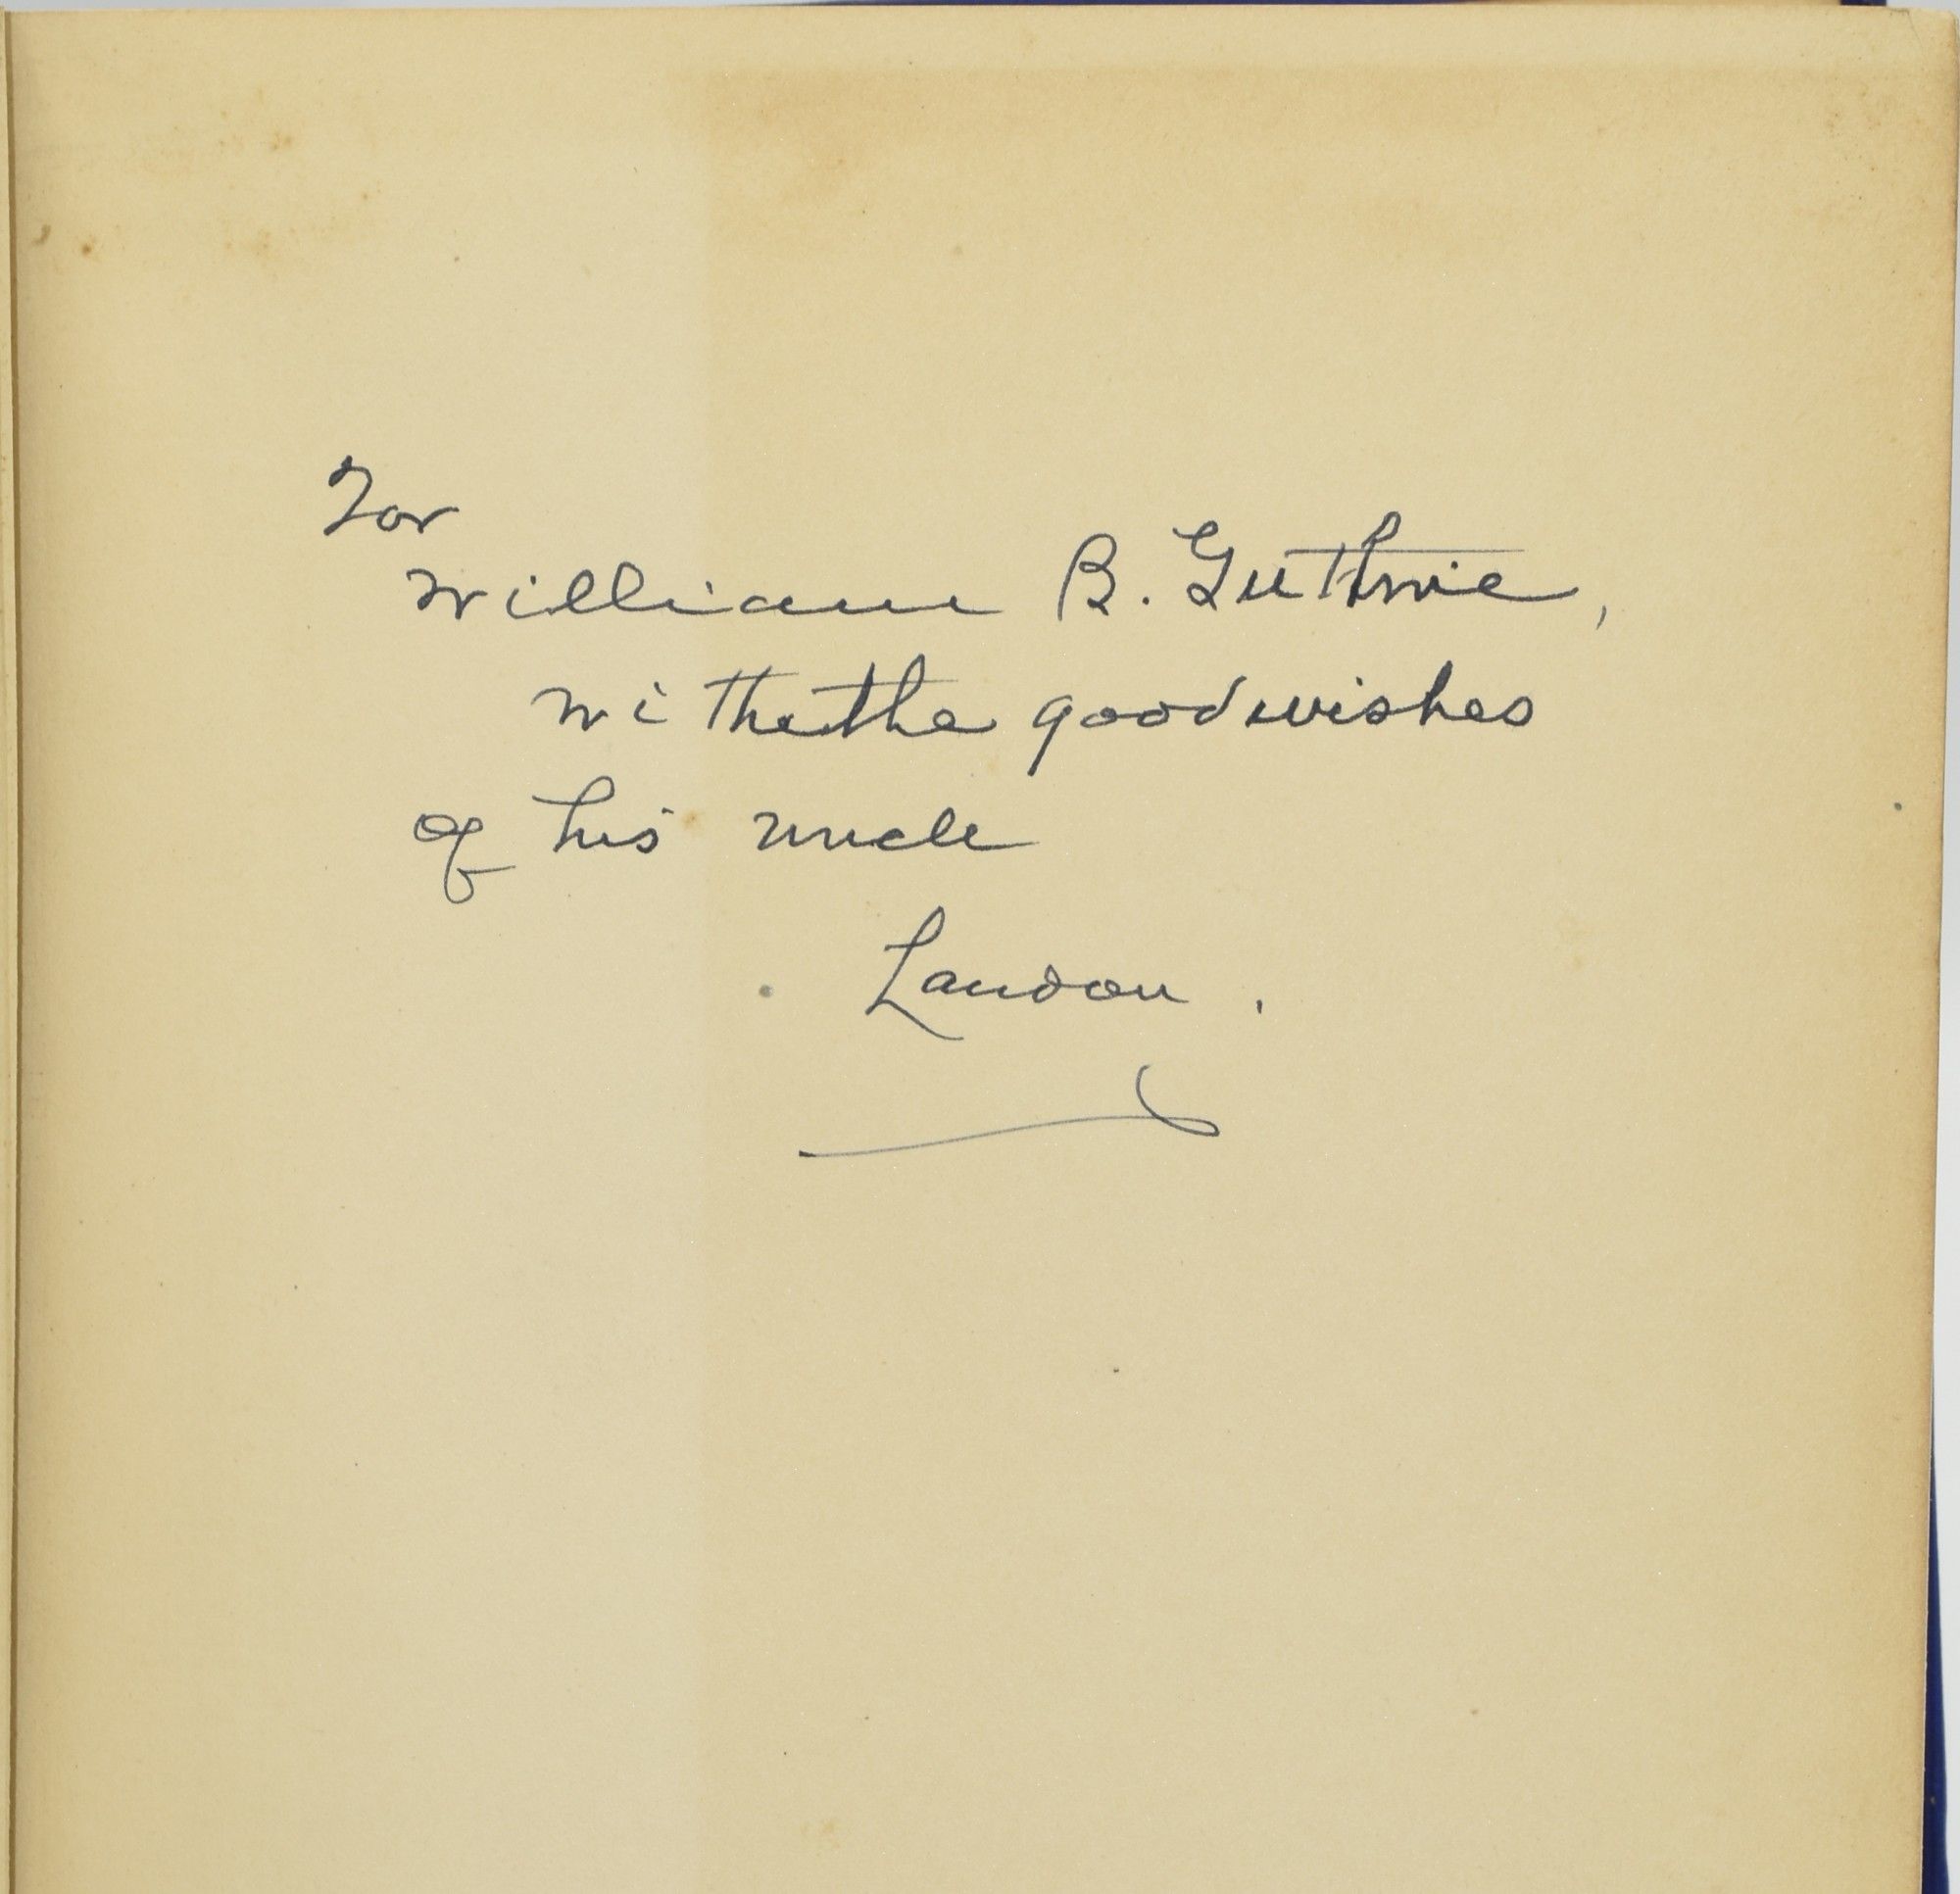 For
William B. Guthrie,
with the good wishes
of his uncle
Landon.